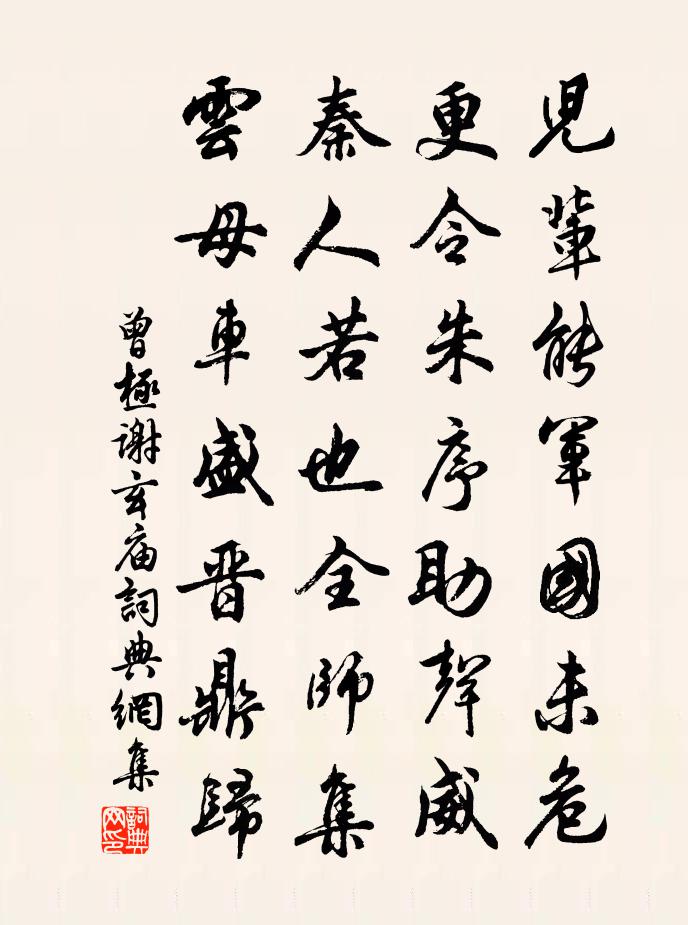 児輩能軍國未危
更令朱序助聲威
秦人若也全師集
雲母車盛晋鼎歸
曾極謝玄庙詞典網集
詞典網印